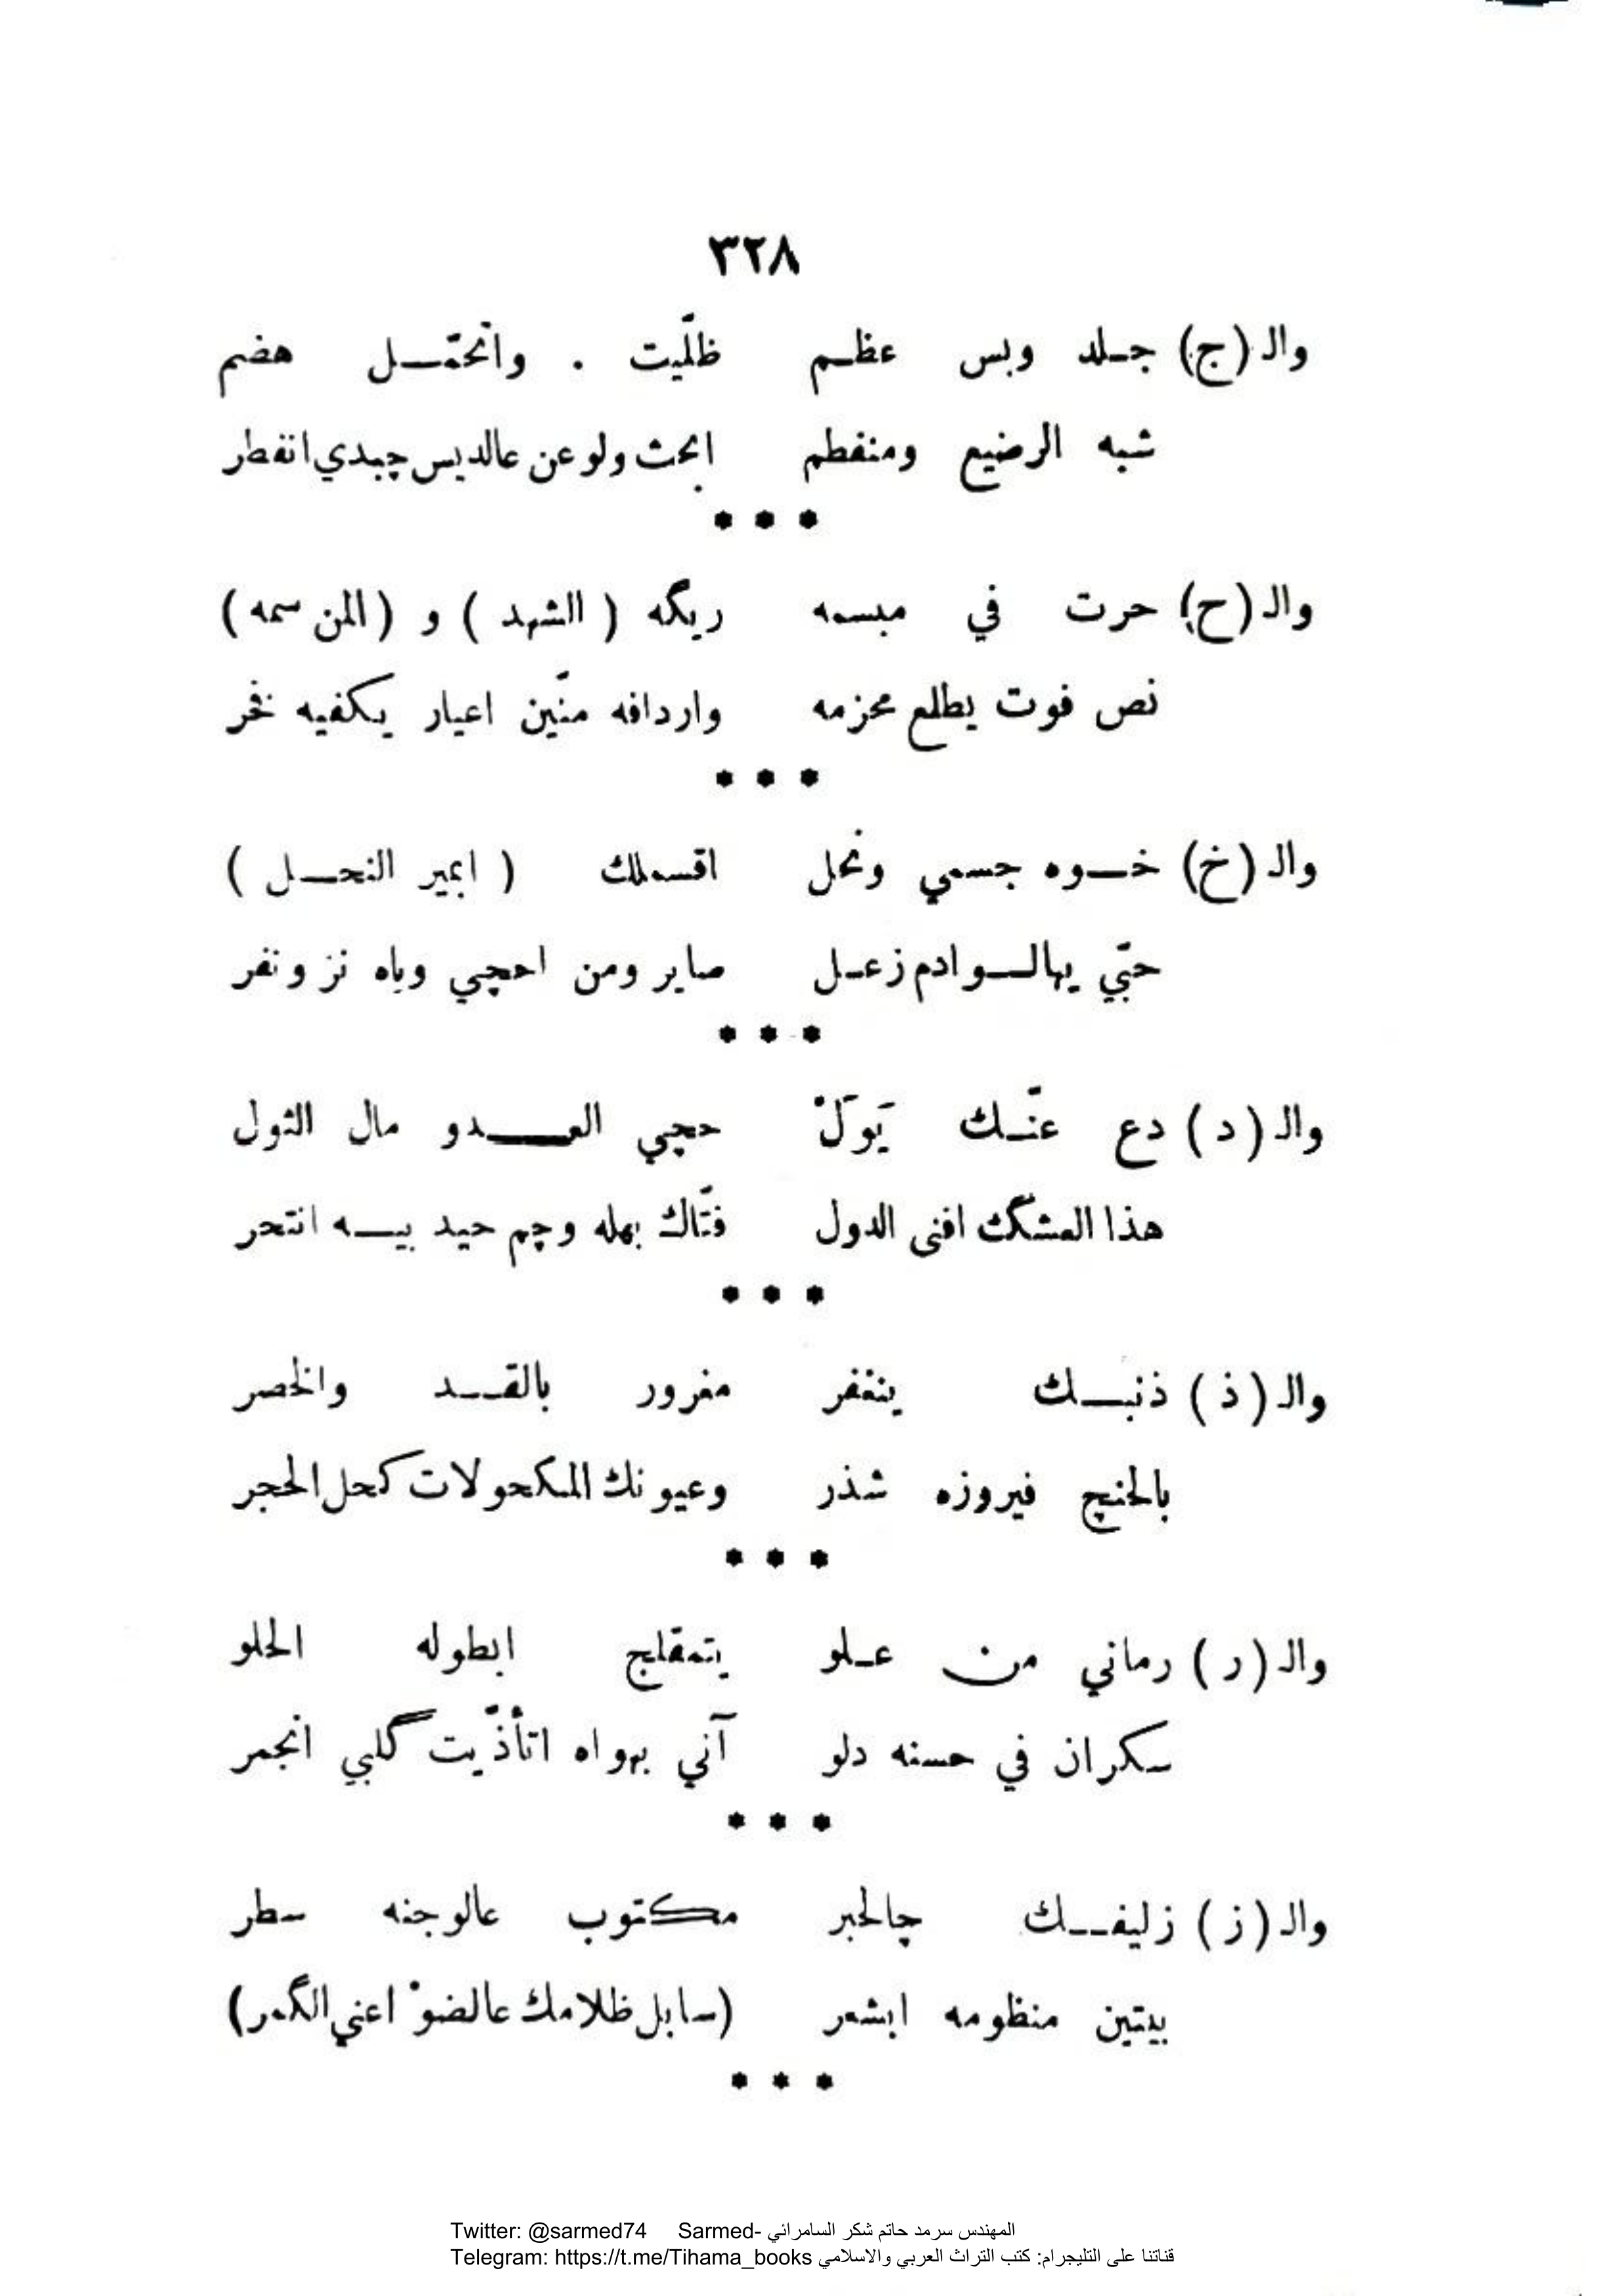 ٣٢٨
والـ (ج) جلد وبس عظم ظلّيت . واتحمّل هضم
شبه الرضيع ومنفطم ابحث ولو عن عالديس چبدي انفطر
* * *
والـ (ح) حرت في مبسمه ريگه ( الشهد ) و ( المن سمه )
نص فوت يطلع محزمه واردافه منّين اعيار يكفيه فخر
* * *
والـ (خ) خوه جسمي ونحل اقسملك ( ابمير النحل )
حبّي يهالوادم زعل صاير ومن احچي وياه نز ونفر
* * *
والـ ( د ) دع عنّك يَولَ حچي العدو مال الثول
هذا العشگ افنى الدول فتّاك بهله وچم حيد بيه انتحر
* * *
والـ ( ذ ) ذنبك ينغفر مغرور بالقد والخصر
بالخنچ فيروزه شذر وعيونك المكحولات كحل الحجر
* * *
والـ ( ر ) رماني من علو يتمقلج ابطوله الحلو
سكران في حسنه دلو آني بهواه اتأذّيت گلبي انجمر
* * *
والـ ( ز ) زليفك چالحبر مكتوب عالوجنه سطر
بيتين منظومه ابشعر (سابل ظلامك عالضوْ اعني الگمر)
* * *
Twitter: @sarmed74 Sarmed- المهندس سرمد حاتم شكر السامرائي
Telegram: https://t.me/Tihama_books قناتنا على التليجرام: كتب التراث العربي والاسلامي